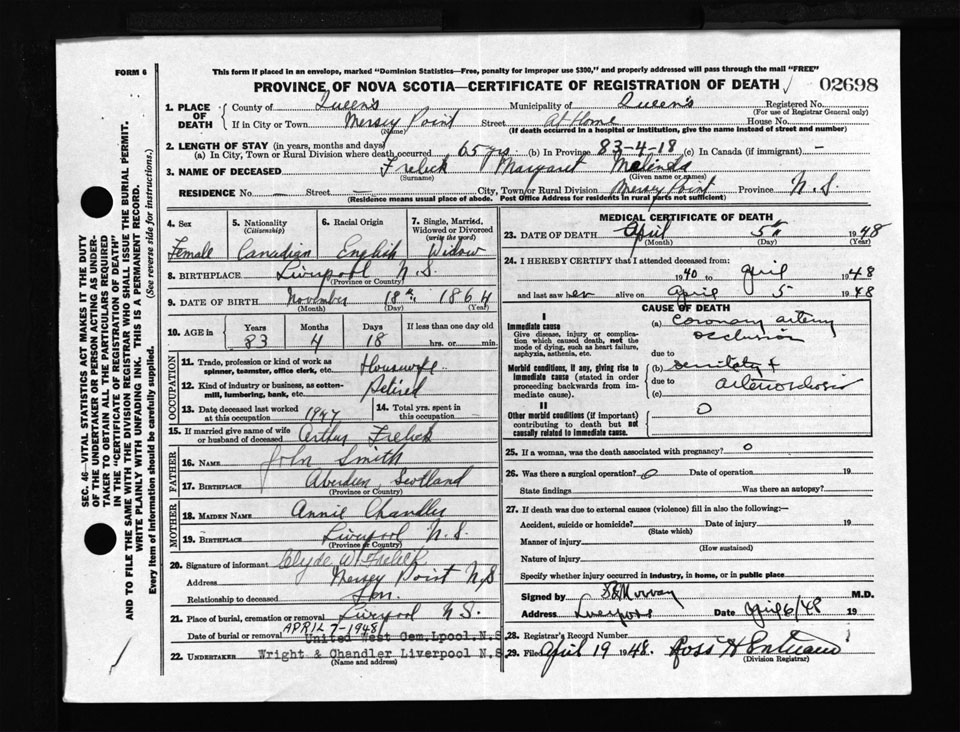 FORM 6
This form if placed in an envelope, marked "Dominion Statistics—Free, penalty for improper use $300," and properly addressed will pass through the mail "FREE"
PROVINCE OF NOVA SCOTIA—CERTIFICATE OF REGISTRATION OF DEATH 02698
SEC. 46—VITAL STATISTICS ACT MAKES IT THE DUTY
OF THE UNDERTAKER OR PERSON ACTING AS UNDER-
TAKER TO OBTAIN ALL THE PARTICULARS REQUIRED
IN THE "CERTIFICATE OF REGISTRATION OF DEATH"
AND TO FILE THE SAME WITH THE DIVISION REGISTRAR WHO SHALL ISSUE THE BURIAL PERMIT.
WRITE PLAINLY WITH UNFADING INK. THIS IS A PERMANENT RECORD.
Every item of information should be carefully supplied. (See reverse side for instructions.)
1. PLACE OF DEATH
County of Queens Municipality of Queen's Registered No.
(For use of Registrar General only)
If in City or Town Mersey Point Street At Home House No.
(Name) (If death occurred in a hospital or institution, give the name instead of street and number)
2. LENGTH OF STAY (in years, months and days)
(a) In City, Town or Rural Division where death occurred 65 yrs. (b) In Province 83-4-18 (c) In Canada (if immigrant) —
3. NAME OF DECEASED Frelick Margaret Malinda
(Surname) (Given name or names)
RESIDENCE No. — Street — City, Town or Rural Division Mersey Point Province N.S.
(Residence means usual place of abode. Post Office Address for residents in rural parts not sufficient)
4. Sex 5. Nationality 6. Racial Origin 7. Single, Married,
(Citizenship) Widowed or Divorced
(write the word)
Female Canadian English Widow
8. BIRTHPLACE Liverpool N.S.
(Province or Country)
9. DATE OF BIRTH November 18th 1864
(Month) (Day) (Year)
10. AGE in Years Months Days If less than one day old
83 4 18 hrs. or min.
OCCUPATION
11. Trade, profession or kind of work as
spinner, teamster, office clerk, etc. Housewife
12. Kind of industry or business, as cotton-
mill, lumbering, bank, etc. Retired
13. Date deceased last worked 14. Total yrs. spent in
at this occupation 1947 this occupation
15. If married give name of wife
or husband of deceased Arthur Frelick
FATHER
16. NAME John Smith
17. BIRTHPLACE Aberdeen, Scotland
(Province or Country)
MOTHER
18. MAIDEN NAME Annie Chandler
19. BIRTHPLACE Liverpool N.S.
(Province or Country)
20. Signature of informant Clyde W. Frelick
Address Mersey Point N.S
Relationship to deceased Son.
21. Place of burial, cremation or removal Liverpool N.S.
Date of burial or removal APRIL 7-1948
United West Cem. Lpool, N.S
22. UNDERTAKER Wright & Chandler Liverpool N.S.
(Name and address)
MEDICAL CERTIFICATE OF DEATH
23. DATE OF DEATH April 5th 1948
(Month) (Day) (Year)
24. I HEREBY CERTIFY that I attended deceased from:
1940 to April 1948
and last saw her alive on April 5 1948
CAUSE OF DEATH
I
Immediate cause
Give disease, injury or complica-
tion which caused death, not the
mode of dying, such as heart failure,
asphyxia, asthenia, etc.
(a) Coronary artery
occlusion
due to
Morbid conditions, if any, giving rise to
immediate cause (stated in order
proceeding backwards from im-
mediate cause).
(b) Senility +
due to
(c)
II
Other morbid conditions (if important)
contributing to death but not
causally related to immediate cause.
0
25. If a woman, was the death associated with pregnancy? 0
26. Was there a surgical operation? 0 Date of operation 19
State findings Was there an autopsy?
27. If death was due to external causes (violence) fill in also the following:—
Accident, suicide or homicide? Date of injury 19
(State which)
Manner of injury
(How sustained)
Nature of injury
Specify whether injury occurred in industry, in home, or in public place
Signed by M.D.
Address Liverpool Date April 6/48 19
28. Registrar's Record Number
29. Filed April 19 1948.
(Division Registrar)